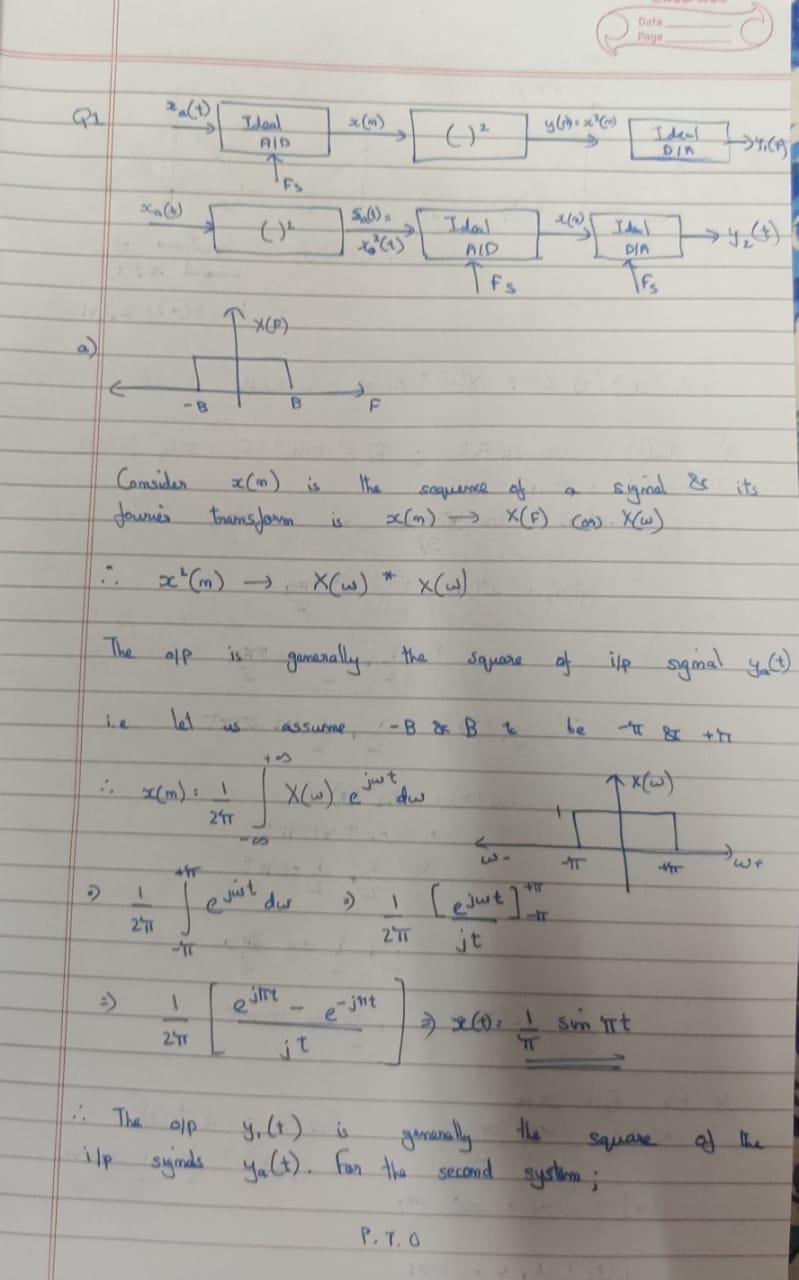 Date
Page
Q1
xa(t) Ideal A/D x(n) ( )² y(n) = x²(n) Ideal D/A y1(t)
Fs
xa(t) ( )² sa(t) = xa²(t) Ideal A/D x(n) Ideal D/A y2(t)
Fs Fs
a)
X(F)
-B B F
Consider x(n) is the sequence of a signal & its
fourier transform is x(n) → X(F) (or) X(ω)
∴ x²(n) → X(ω) * X(ω)
The o/p is generally the square of i/p signal ya(t)
i.e let us assume, -B & B to be -π & +π
∴ x(n) = 1/2π ∫_{-∞}^{+∞} X(ω) e^{jωt} dω
X(ω)
1
ω- -π +π ω+
⇒ 1/2π ∫_{-π}^{+π} e^{jωt} dω ⇒ 1/2π [e^{jωt}/jt]_{-π}^{+π}
⇒ 1/2π [(e^{jπt} - e^{-jπt})/jt] ⇒ x(t) = 1/π sin πt
∴ The o/p y1(t) is generally the square of the
i/p signals ya(t). For the second system;
P.T.O